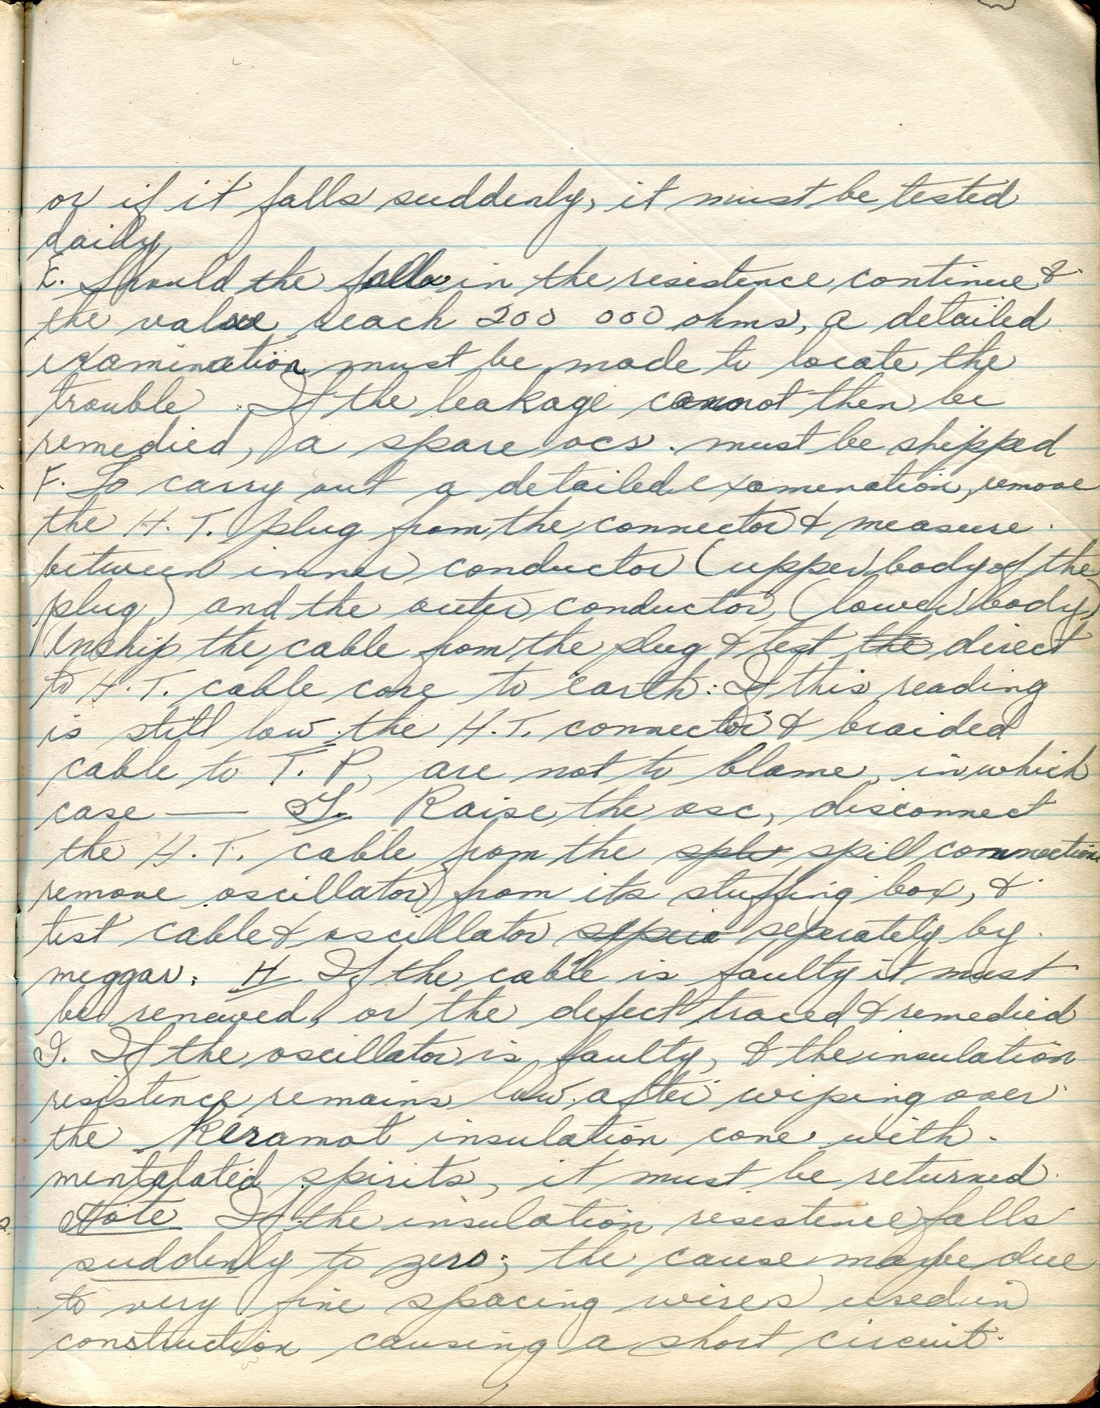 or if it falls suddenly, it must be tested
daily.
E. Should the falls in the resistence continue &
the value reach 200 000 ohms, a detailed
examination must be made to locate the
trouble. If the leakage cannot then be
remedied, a spare ocs. must be shipped
F. To carry out a detailed examenation, remove
the H.T. plug from the connector & measure
between inner conductor (upper body of the
plug) and the outer conductor, (lower body)
Unship the cable from the plug & test the direct
to H.T. cable core to earth: If this reading
is still low the H.T. connector & braided
cable to T.P, are not to blame, in which
case — G. Raise the osc, disconnect
the H.T. cable from the splw spill connection
remove oscillator from its stuffing box, &
test cable & oscillator sepera seperately by
meggar. H If the cable is faulty it must
be renewed, or the defect traced & remedied
I. If the oscillator is faulty, & the insulation
resistence remains low after wiping over
the Keramot insulation cone with
mentalated spirits, it must be returned
Note If the insulation resistence falls
suddenly to zero; the cause maybe due
to very fine spacing wires used in
construction causing a short circuit.